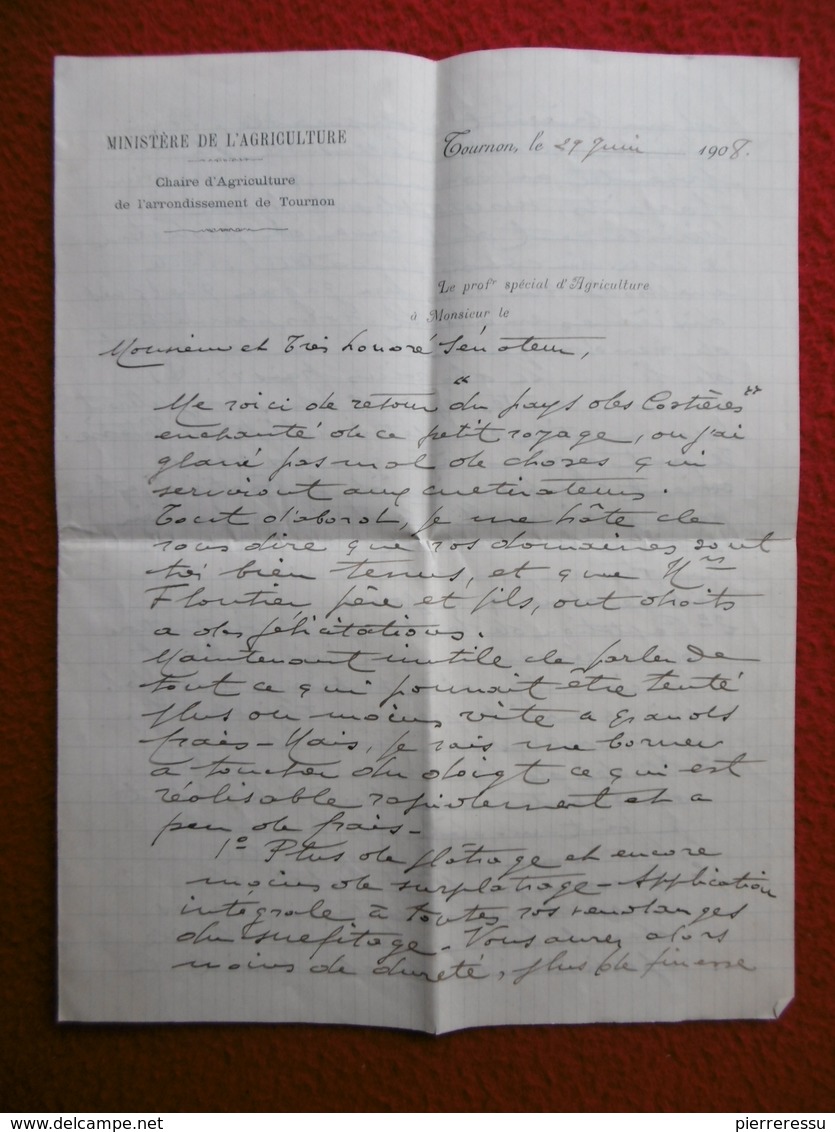 MINISTÈRE DE L'AGRICULTURE
Chaire d'Agriculture
de l'arrondissement de Tournon
Tournon, le 29 Juin 1908.
Le profr spécial d'Agriculture
à Monsieur le
Monsieur et Très honoré Sénateur,
Me voici de retour "du pays des Costières"
enchanté de ce petit voyage, ou j'ai
glané pas mal de choses qui
serviront aux cultivateurs.
Tout d'abord, je me hâte de
vous dire que vos domaines sont
très bien tenus, et que Mrs
Floutier, père et fils, ont droits
a des félicitations.
Maintenant inutile de parler de
tout ce qui pourrait être tenté
plus ou moins vite a grands
frais - Mais, je vais me borner
a toucher du doigt ce qui est
réalisable rapidement et a
peu de frais -
1º Plus de plâtrage et encore
moins de surplatrage - Application
intégrale à toutes vos vendanges
du sulfitage - Vous aurez alors
moins de dureté, plus de finesse
delcampe.net
pierreressu